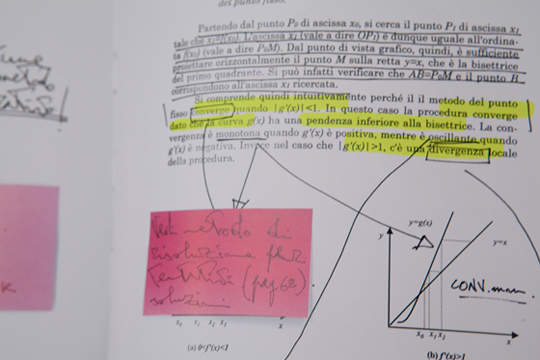 del punto fisso.
Partendo dal punto P₀ di ascissa x₀, si cerca il punto P₁ di ascissa x₁
tale che x₁=g(x₀). L'ascissa x₁ (vale a dire OP₁) è dunque uguale all'ordina-
ta g(x₀) (vale a dire P₀M). Dal punto di vista grafico, quindi, è sufficiente
proiettare orizzontalmente il punto M sulla retta y=x, che è la bisettrice
del primo quadrante. Si può infatti verificare che AB=P₀M e il punto B
corrispondono all'ascissa x₁ ricercata.
Si comprende quindi intuitivamente perché il il metodo del punto
fisso converge quando |g'(x)|<1. In questo caso la procedura converge
dato che la curva g(x) ha una pendenza inferiore alla bisettrice. La con-
vergenza è monotona quando g'(x) è positiva, mentre è oscillante quando
g'(x) è negativa. Invece nel caso che |g'(x)|>1, c'è una divergenza locale
della procedura.
metodo di
risoluzione per
tentativi (pag 62)
soluzioni
x₀ x₁ x₂ x₃ x
(a) 0<f'(x)<1
y y=g(x)
y=x
CONV.
x₀ x₁ x₂ x
(b) f'(x)>1